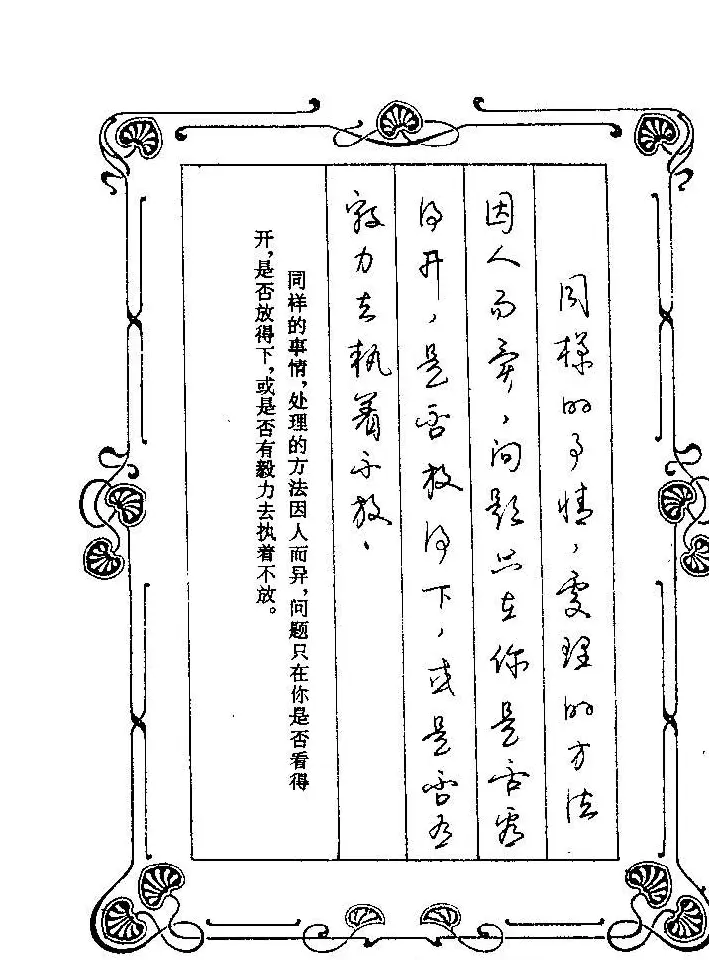 同样的事情，处理的方法
因人而异，问题只在你是否看
得开，是否放得下，或是否有
毅力去执着不放。
同样的事情，处理的方法因人而异，问题只在你是否看得
开，是否放得下，或是否有毅力去执着不放。